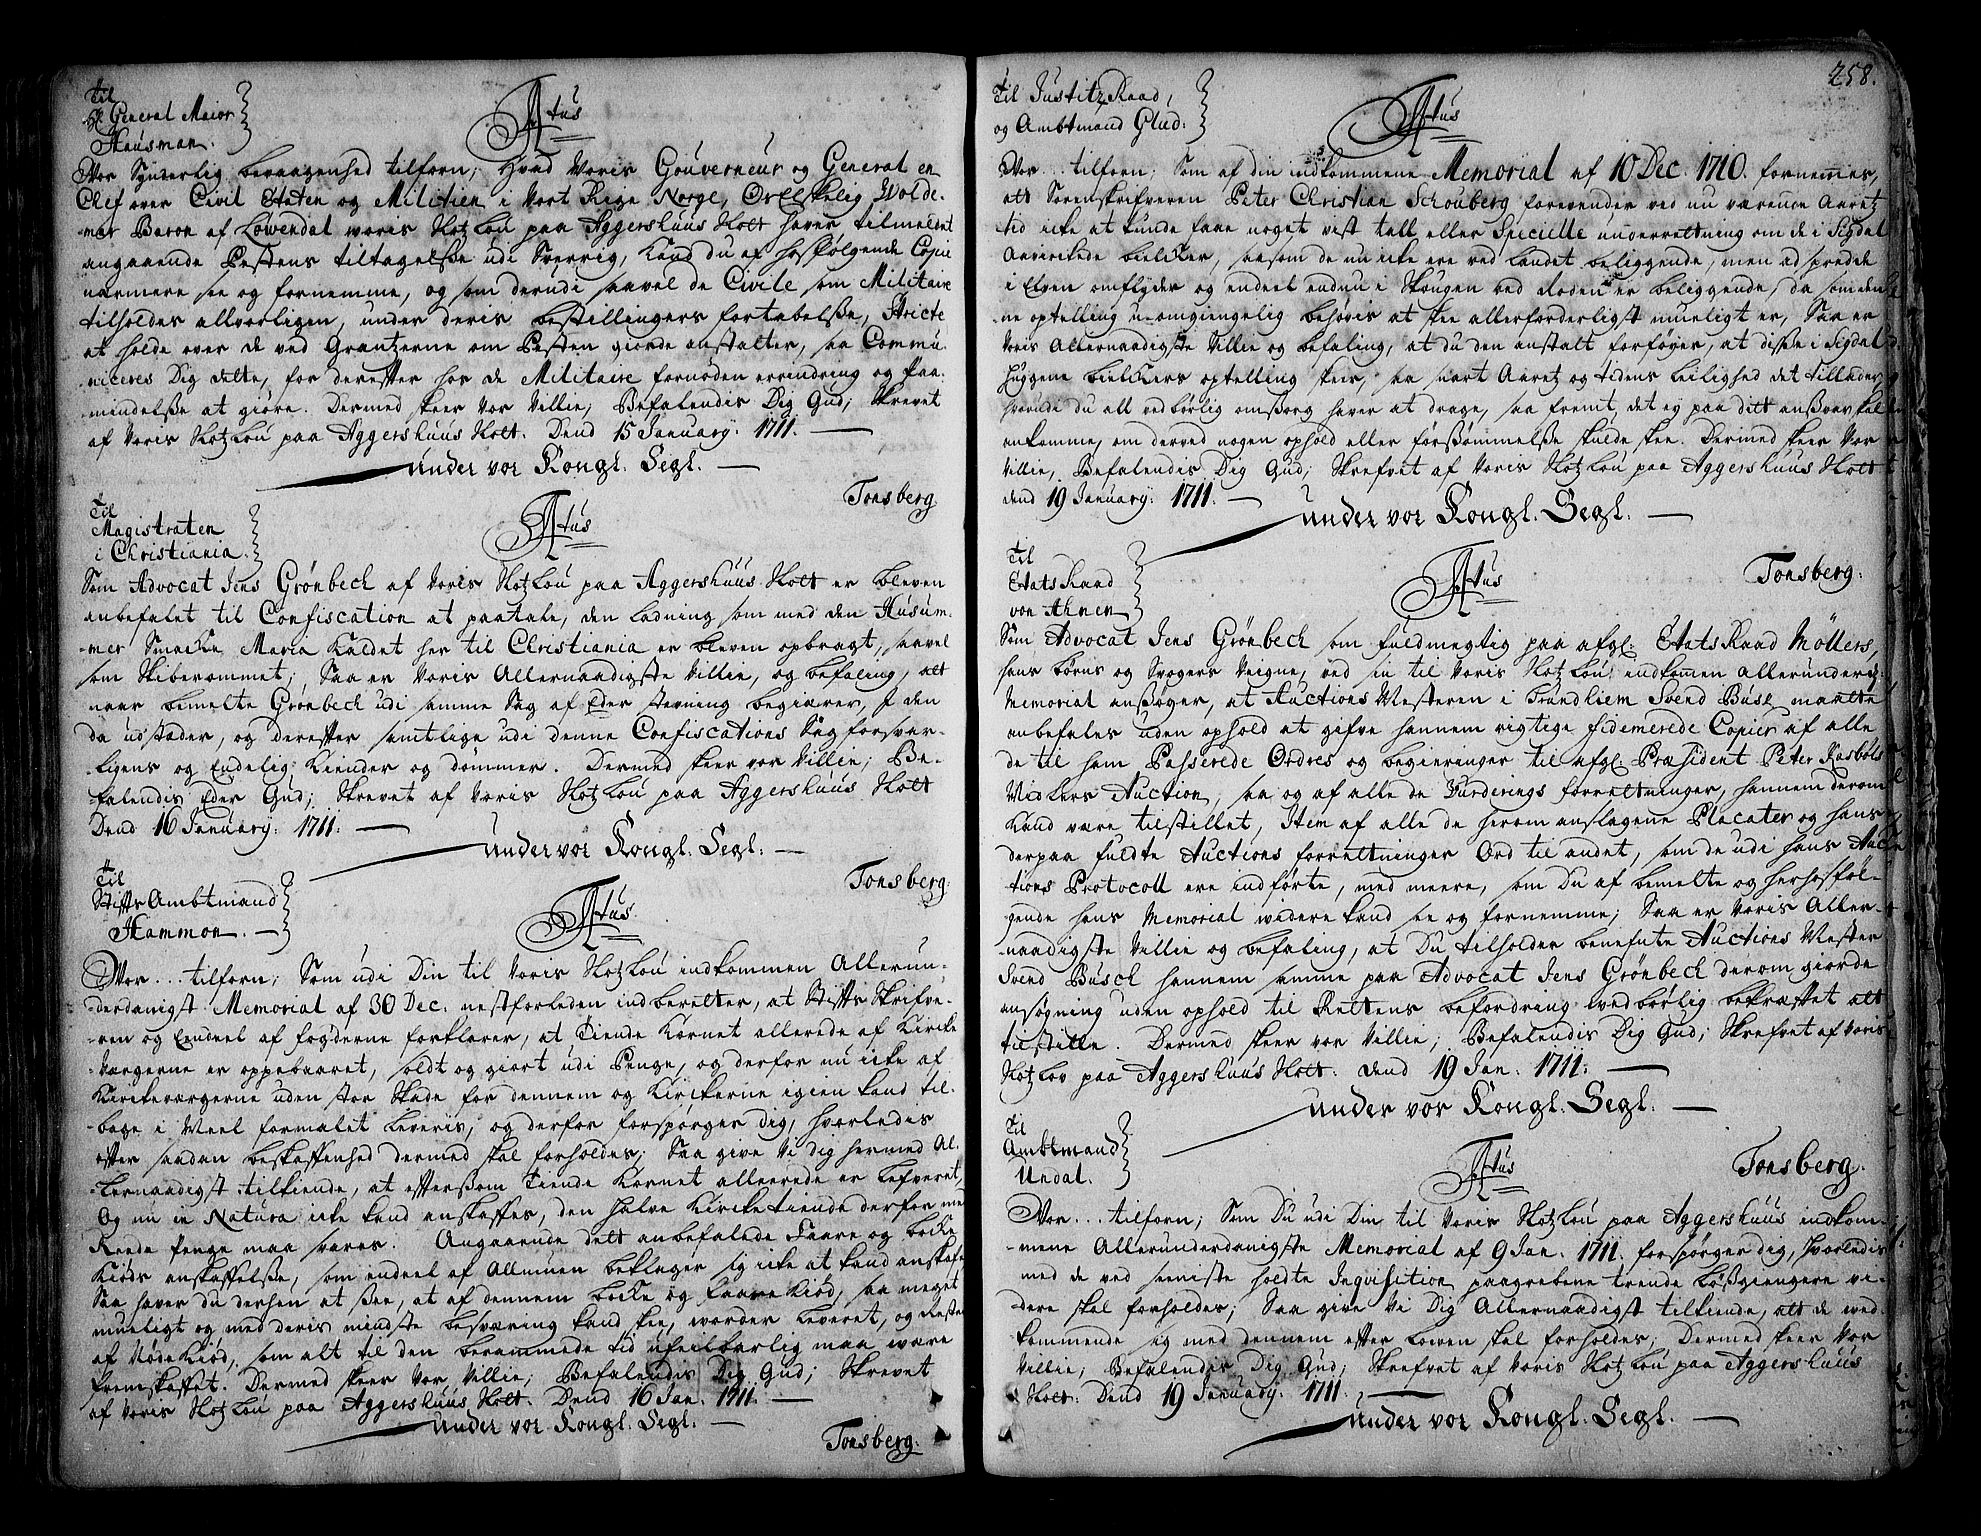 Til
Hr General Maior
Hausman.
Atus
Vor Synderlig bevaagenhed tilforn; Hvad Voris Gouverneur og General en
Chef over Civil Etaten og Militien i Vort Rige Norge, Os Elskelig Wolde-
mar Baron af Løwendal woris Slotzlou paa Aggershuus Slott haver tilmeldet
angaaende Pestens tiltagelsse udi Sverrig, Kand du af hosfølgende Copie
nærmere see og fornemme, og som derudi saavel de Civile som Militaire
tilholdes allvorligen, under deris bestillingers fortabelsse, Stricte
at holde over de ved Grantzerne om Pesten giorde anstalter, saa Commu-
niceres Dig dette, for derefter hos de Militaire fornøden erindring og paa-
mindelsse at giøre. Dermed skeer Vor Villie; Befalendis Dig Gud; Skrevet
af Voris Slotzlou paa Aggershuus Slott. Dend 15 January: 1711.
under vor Kongl. Segl.
Tonsberg
Til
Magistraten
i Christiania.
Atus
Som Advocat Jens Grønbech af Voris Slotzlou paa Aggershuus Slott er bleven
anbefalet til Confiscation at paatale, den ladning som med den Husum-
mer Smacke Maria kaldet her til Christiania er bleven opbragt, saavel
som Skiberommet; Saa er Voris Allernaadigste Villie, og befaling, att
naar bemelte Grønbech udi samme Sag af Eder stevning begiærer, I den
da udstæder, og derefter samtlige udi denne Confiscations Sag forsvar-
ligens og Endelig kiender og dømmer. Dermed skeer vor Villie; Be-
falendis Eder Gud; Skrevet af Voris Slotzlou paa Aggershuus Slott
Dend 16 January: 1711.
under vor Kongl. Segl.
Tonsberg.
Til
Stiffts Ambtmand
Hammon.
Atus
Vor... tilforn; Som udi Din til Voris Slotzlou indkommen Allerun-
derdanigst Memorial af 30 Dec: nestforleden indberetter, at Stiffts Skrifve-
ren og Eendeel af fogderne forklarer, at Tiende Kornet allerede af Kirke
Vergerne er oppebaaret, soldt og giort udi Penge, og derfor nu icke af
Kirkeværgerne uden stor Skade for dennem og Kirkerne igien kand til-
bage i Meel formalet leveris, og derfor forspørger dig, hvorledis
effter saadan beskaffenhed dermed skal forholdes; Saa give Vi dig hermed Al-
lernaadigst tilkiende, at efftersom Tiende Kornet allereede er lefveret,
Og nu in Natura icke kand anskaffes, den halve Kirketiende derfor med
Reede Penge maa svares. Angaaende dett anbefalede Faare og bocke
Kiøds anskaffelsse, som endeel af Allmuen beklager sig icke at kand anskaffe
Saa haver du derhen at see, at af dennem bocke og faare Kiød, saa meget
mueligt og med deris mindste besværing kand skee, worder leveret, og Resten
af Nødekiød, som alt til den berammede tid ufeilbarlig maa være
fremskaffet. Dermed skeer Vor Villie; Befalendis Dig Gud; Skrevet
af Voris Slotzlou paa Aggershuus Slott. Dend 16 Jan. 1711.
under vor Kongl. Segl.
Tonsberg.
258.
Til Justitz Raad,
og Ambtmand Glud.
Atus
Vor... tilforn; Som af din indkommene Memorial af 10 Dec. 1710. fornemmes,
att Sorenskrifveren Peter Christian Schouberg forevender ved nu værende Aaretz
tid icke at kunde faae noget vist tall eller Specielle underrettning om de i Sigdal
Aarvirkede bielcker, saasom de nu icke ere ved landet beliggende, men adspredde
i Elven omflyder og endeel endnu i Skougen ved Roden er beliggende, da som den-
ne optelling u-omgiengelig behøvis at skee allerforderligst mueligt er, Saa er
Voris Allernaadigste Villie og befaling, at du den anstalt forføyer, at disse i Sigdal
huggene bielckers optelling skeer, saa snart Aaretz og tidens leilighed det tillader,
hvorude du all vedbørlig omsorg haver at drage, saa fremt det ey paa ditt ansvar skal
ankomme, om derved nogen ophold eller forsømmelsse skulde skee. Dermed skeer Vor
Villie, Befalendis Dig Gud; Skrefvet af Voris Slotzlou paa Aggershuus Slott
dend 19 January: 1711.
under vor Kongl. Segl.
Tonsberg.
Til
Etats Raad
von Ahnen
Atus
Som Advocat Jens Grønbech som fuldmegtig paa afgl. Etats Raad Møllers,
hans børns og Svogers Veigne, ved sin til Voris Slotzlou indkomen allerunderd:
Memorial ansøger, at Auctions Mesteren i Trundhiem Svend Busk maatte
anbefales uden ophold at gifve hannem rigtige fidemerede Copier af alle
de til ham Passerede Ordres og begieringer til afgl. Præsident Peter Rasbøls
Midlers Auction; saa og af alle de Vurderings forrettninger, hannem derom
kand være tilstillet, Item af alle de herom anslagene Placater og hans
derpaa fuldte Auctions forrettninger Ord til andet, som de udi hans Auc-
tions Protocoll ere indførte, med meere, som Du af bemelte og herhosføl-
gende hans Memorial widere kand see og fornemme; Saa er Voris Aller-
naadigste Villie og befaling, at Du tilholder benefnte Auctions Mester
Svend Busch hannem samme paa Advocat Jens Grønbech derom giorde
ansøgning uden ophold til Rettens befordring wedbørlig bekræfftet att
tilstille. Dermed skeer vor Villie; Befalendis Dig Gud; Skrefvet af Voris
Slotzlov paa Aggershuus Slott. dend 19 Jan. 1711.
under vor Kongl. Segl.
Tonsberg.
Til
Ambtmand
Undal.
Atus
Vor... tilforn; Som Du udi Din til Voris Slotzlou paa Aggershuus indkom-
mene Allerunderdanigste Memorial af 9 Jan. 1711. forspørger dig, hvorledis
med de ved seeniste holdte Inquisition paagrebene trende løssgiengere vi-
dere skal forholdes; Saa give Vi Dig Allernaadigst tilkiende, att de ved-
kommende sig med dennem efter lowen skal forholdes; Dermed skeer Vor
Villie; Befalendes Dig Gud; Skrefvet af Voris Slotzlou paa Aggershuus
Slott. Dend 19 January: 1711.
under vor Kongl. Segl.